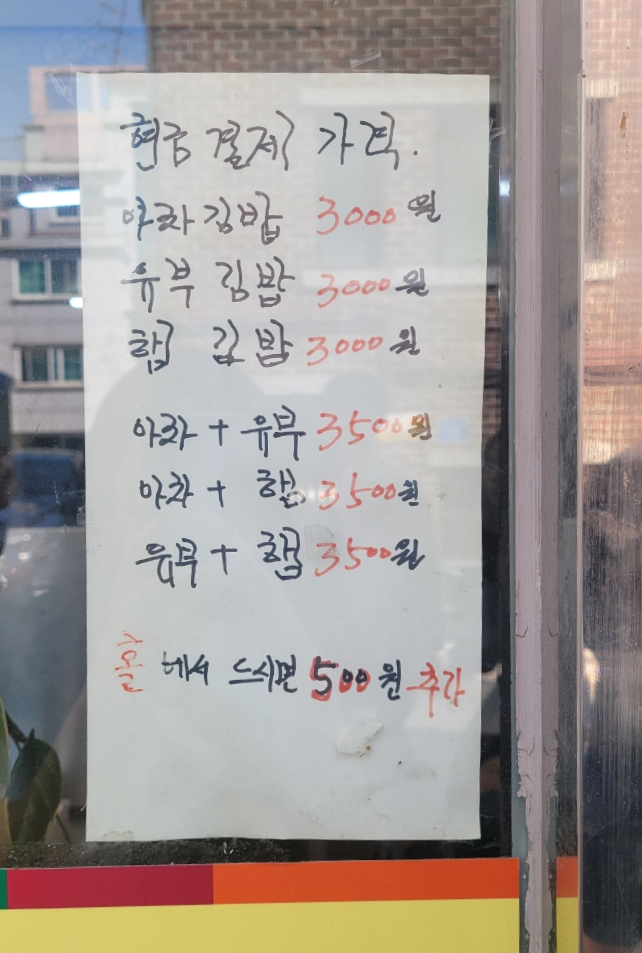 현금 결제 가격.
야채김밥 3000원
유부 김밥 3000원
햄 김밥 3000원
야채 + 유부 3500원
야채 + 햄 3500원
유부 + 햄 3500원
홀에서 드시면 500원 추가